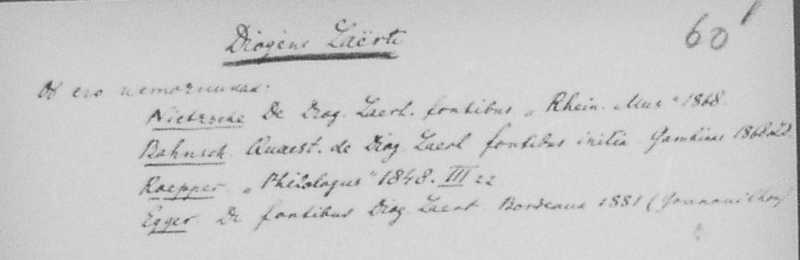 Diogène Laërte 60
Об его источниках:
Nietzsche De Diog. Laert. fontibus „Rhein. Mus" 1868.
Bahnsch. Quaest. de Diog Laert fontibus initia 1868
Roeper. „Philologus" 1848. III 22
Egger. De fontibus Diog. Laert Bordeaux 1881 (